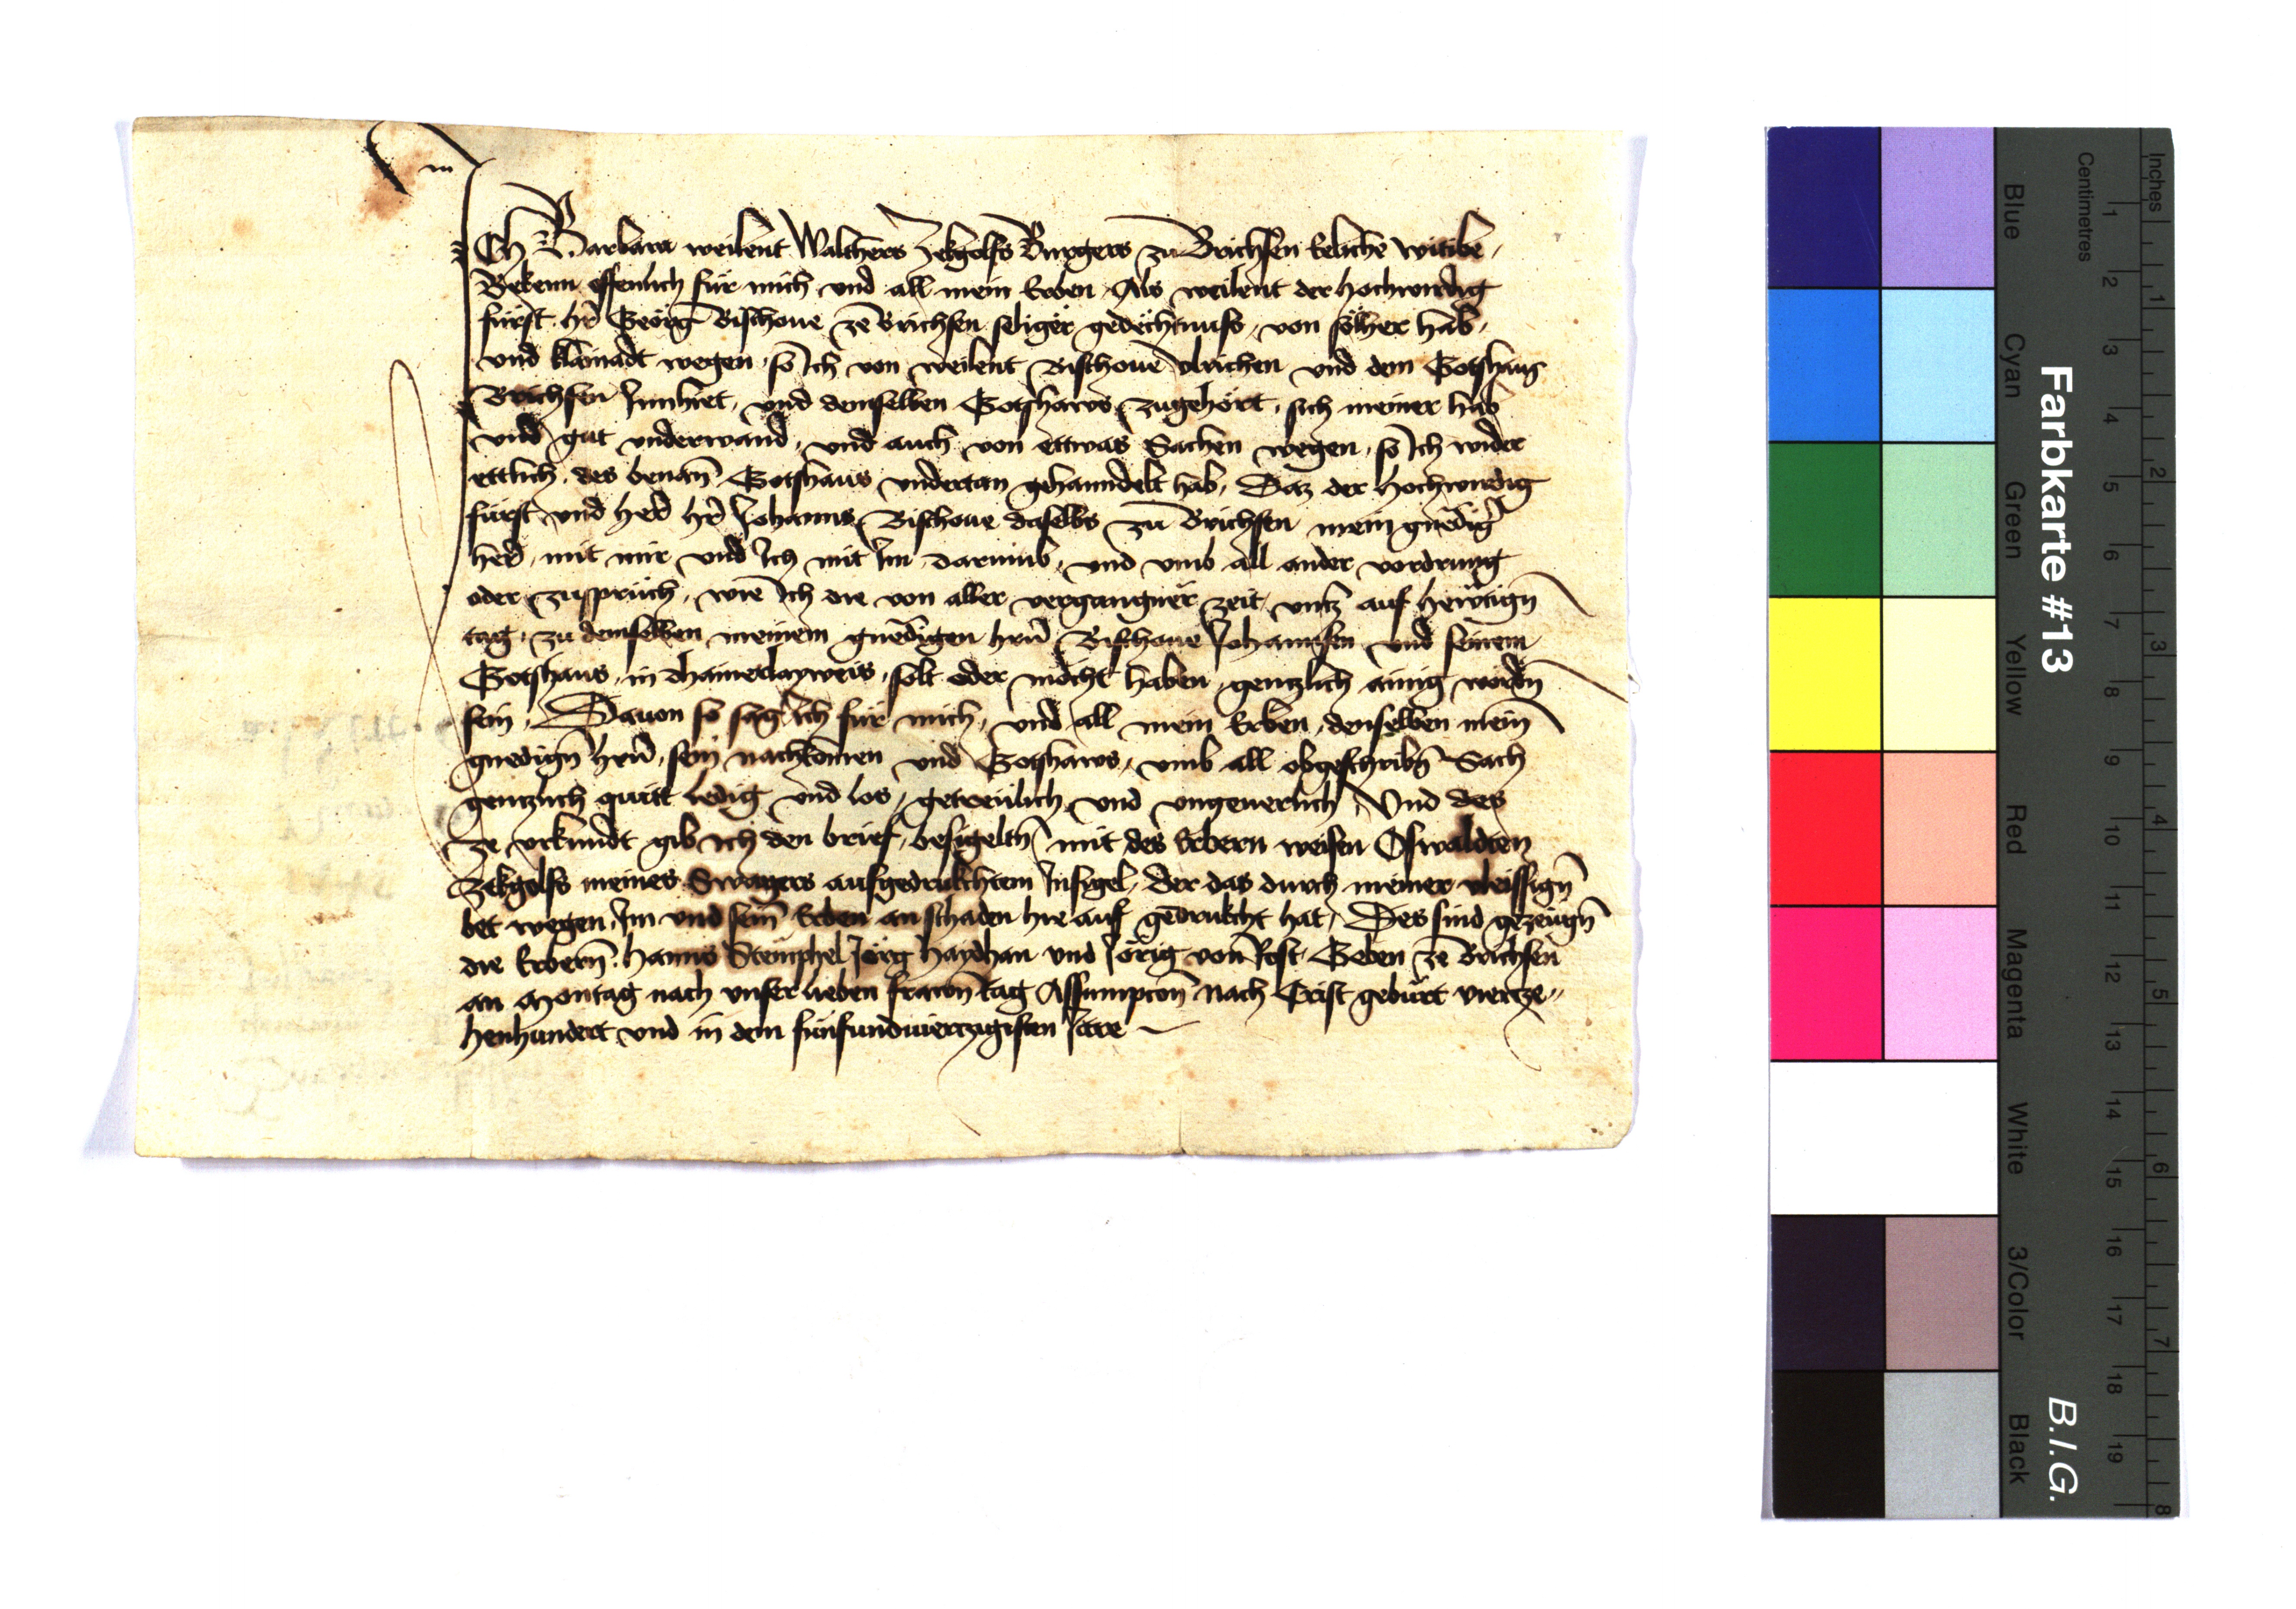 Ich Barbara weilent Walthers Zekgolfs Burgers zu Brichsen Eeliche witibe,
Bekenn offenlich für mich und all mein Erben, Als weilent der hochwirdig
fürst hr̄ Georg Bischoue ze Brichsen seliger gedechtnuss, von sölher hab,
und klainadt wegen, so Ich von weilent Bischoue Vlrichen und dem Gotshaus
Brichsen Innhiet, und demselben Gotshaws zugehört, sich meiner hab
und gut underwand, und auch von ettwas Sachen wegen, so Ich wider
ettlich des benan̄ Gotshaus undertan gehanndelt hab, Daz der Hochwirdig
fürst und herr hr̄ Johanns Bischoue daselbs zu Brichsen mein gnediḡ
herr, mit mir und Ich mit Im darumb, und umb all ander vordrung
oder zuspruch, wie Ich die von aller vergangner zeit, untz auf hewtign̄
tag, zu demselben meinem gnedigen hrn̄ Bischoue Johannsen und seinem
Gotshaus, in dhainerlayweis, solt oder mocht haben, gentzlich ainig wordn̄
sein, Dauon so sag Ich für mich, und all mein Erben, denselben mein̄
gnedign̄ hrn̄, sein nachkomen und Gotshaws, umb all obgeschribn̄ Sach
gentzlich quitt ledig und los, getrewlich und ungeuerlich, Und des
ze urkundt gib ich den brief, besigeltn̄ mit des Erbern weisen Oswaldten
Zekgolfs meines Swagers aufgedrukchtem Insigel, Der das durch meiner vleissign̄
bet wegen, Im und sein̄ Erben an schaden hie auf gedrukcht hat, Des sind gezeugn̄
die Erbern̄ Hanns Stemphel Jörg Haydhan und Jörig von Rost, Geben ze Brichsen
an Montag nach unser lieben frawn̄ tag Assumpcon̄ Nach Crist geburt viertze-
henhundert und in dem fünfundviertzigisten Jare
Farbkarte #13
B.I.G.
Inches
Centimetres
Blue
Cyan
Green
Yellow
Red
Magenta
White
3/Color
Black
1 2 3 4 5 6 7 8 9 10 11 12 13 14 15 16 17 18 19
1 2 3 4 5 6 7 8